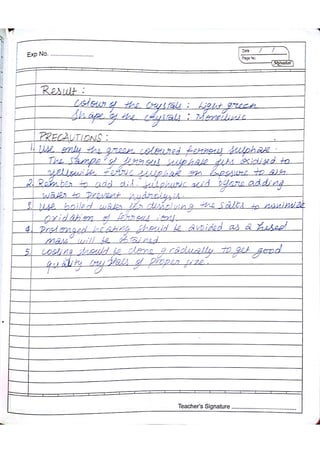 Exp No.
Date / /
Page No.
Result :
Colour of the crystals : Light green
Shape of the crystals : Monoclinic
PRECAUTIONS :
1. Use only the green coloured ferrous sulphate.
The sample of ferrous sulphate gets oxidised to
yellowish ferric sulphate on exposure to air
2. Remember to add dil. sulphuric acid before adding
water to prevent hydrolysis.
3. Use boiled water for dissolving the salts to minimize
oxidation of ferrous ions.
4. Prolonged heating should be avoided as a fused
mass will be obtained
5. Cooling should be done gradually to get good
quality crystals of proper size.
Teacher's Signature